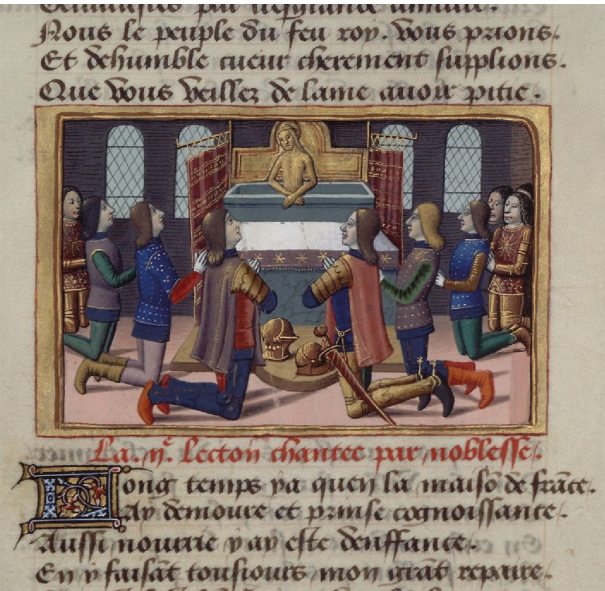 par tresgrande amitie.
Nous le peuple du feu roy. vous prions.
Et dehumble cueur cherement supplions.
Que vous veillez de lame auoir pitie.
La .ije. Lecton chantee par noblesse.
Long temps ya quen la maisõ de frãce.
Ay demoure et prinse cognoissance.
Aussi nourrie y ay este denffance.
En y faisãt tousiours mon grãt repaire.